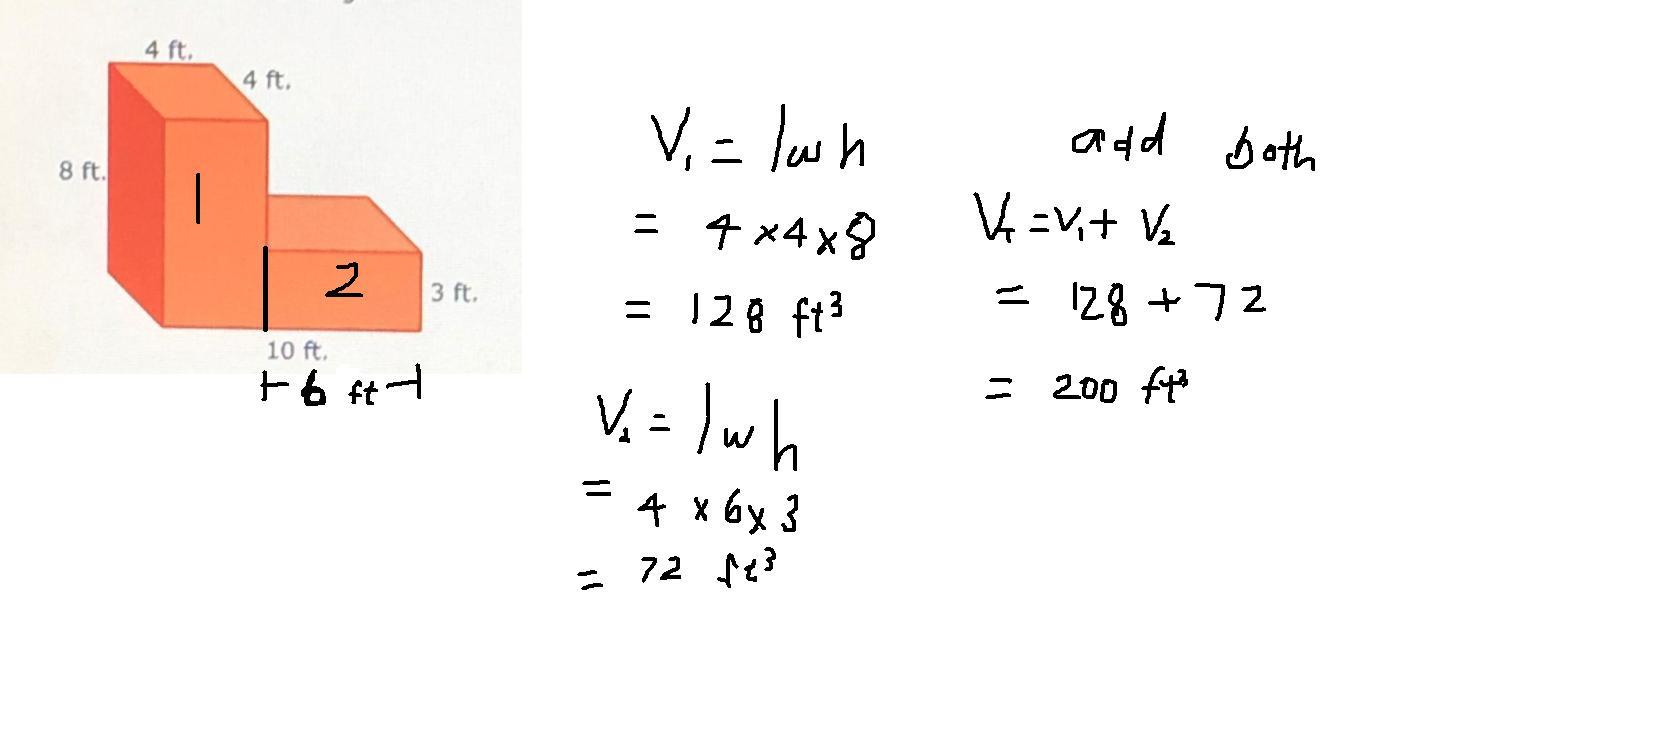 4 ft.
4 ft.
8 ft.
1
2
3 ft.
10 ft.
6 ft
V₁ = lwh
= 4 × 4 × 8
= 128 ft³
V₂ = lwh
= 4 × 6 × 3
= 72 ft³
add both
V_T = V₁ + V₂
= 128 + 72
= 200 ft³